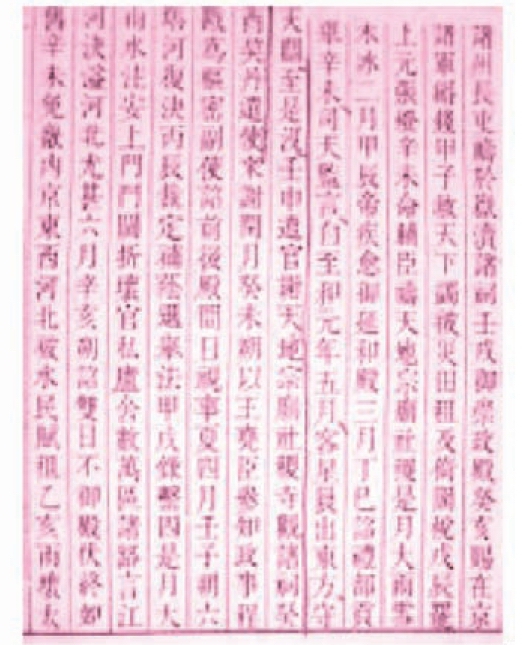 諸州長吏禱於嶽瀆諸祠壬戌御崇政殿癸亥賜在京
諸軍緡錢甲子赦天下蠲被災田租及倚閣稅戊辰罷
上元張燈辛未命輔臣禱天地宗廟社稷是月大雨雪
木冰二月甲辰帝疾愈御延和殿三月丁巳詔禮部貢
舉辛未司天監言自至和元年五月客星晨出東方守
天關至是沒壬申遣官謝天地宗廟社稷寺觀諸祠癸
酉契丹遣使來謝閏月癸未朔以王堯臣參知政事程
戡為樞密副使詔前後殿間日視事夏四月壬子朔六
塔河復決丙辰裁定補蔭選舉法甲戌慮繫囚是月大
雨水注安上門門關折壞官私廬舍數萬區諸路言江
河決溢河北尤甚六月辛亥朔詔雙日不御殿伏終如
舊辛未免畿內京東西河北被水民賦租乙亥雨壞太